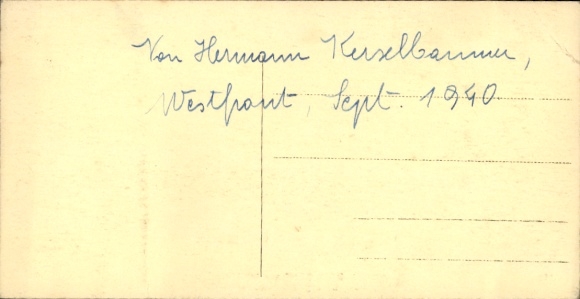 Von Hermann Kerschbaumer,
Westfront, Sept. 1940